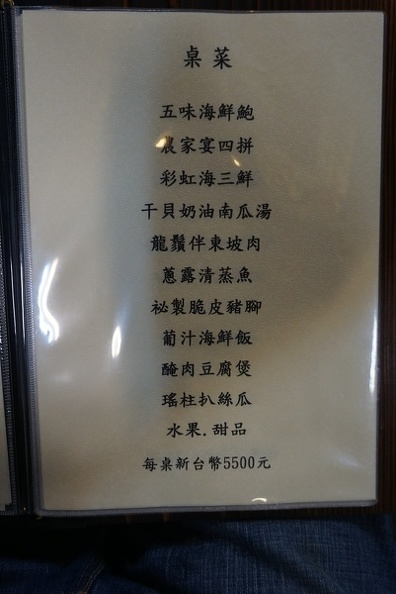 桌菜
五味海鮮鮑
農家宴四拼
彩虹海三鮮
干貝奶油南瓜湯
龍鬚伴東坡肉
蔥露清蒸魚
祕製脆皮豬腳
葡汁海鮮飯
醃肉豆腐煲
瑤柱扒絲瓜
水果.甜品
每桌新台幣5500元